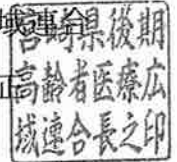 域連合
宮崎県後期
高齢者医療広
域連合長之印